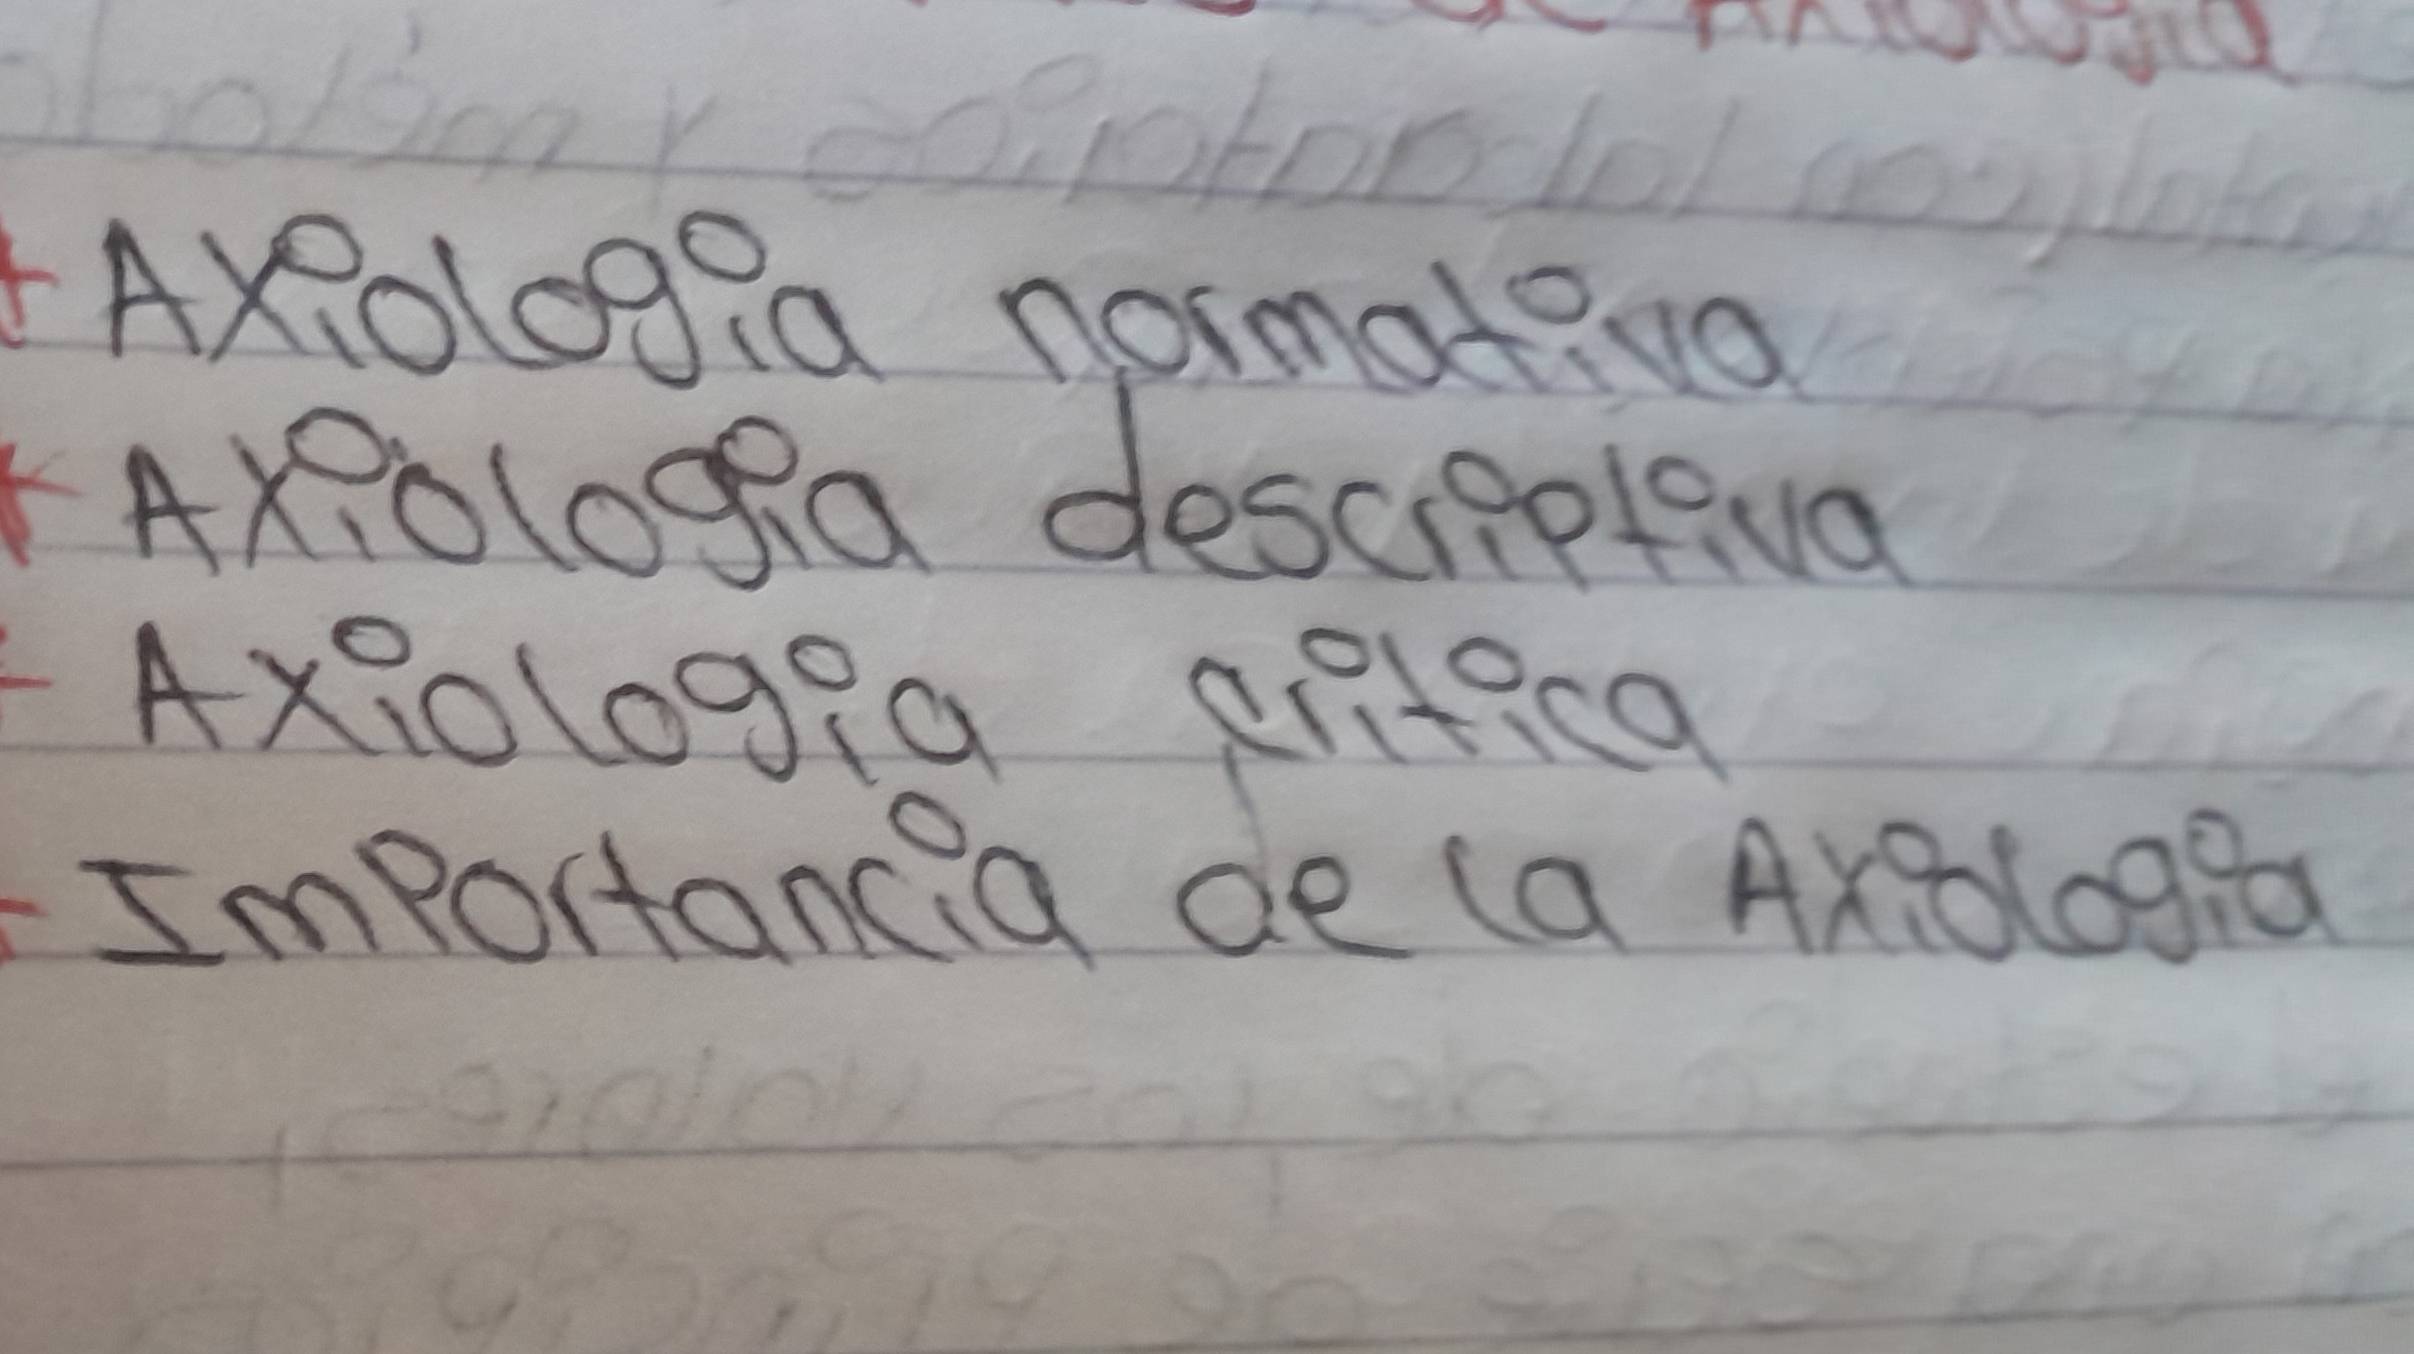 de Axiologia
Axiologia normativa
Axiologia descriptiva
Axiologia critica
Importancia de la Axiologia